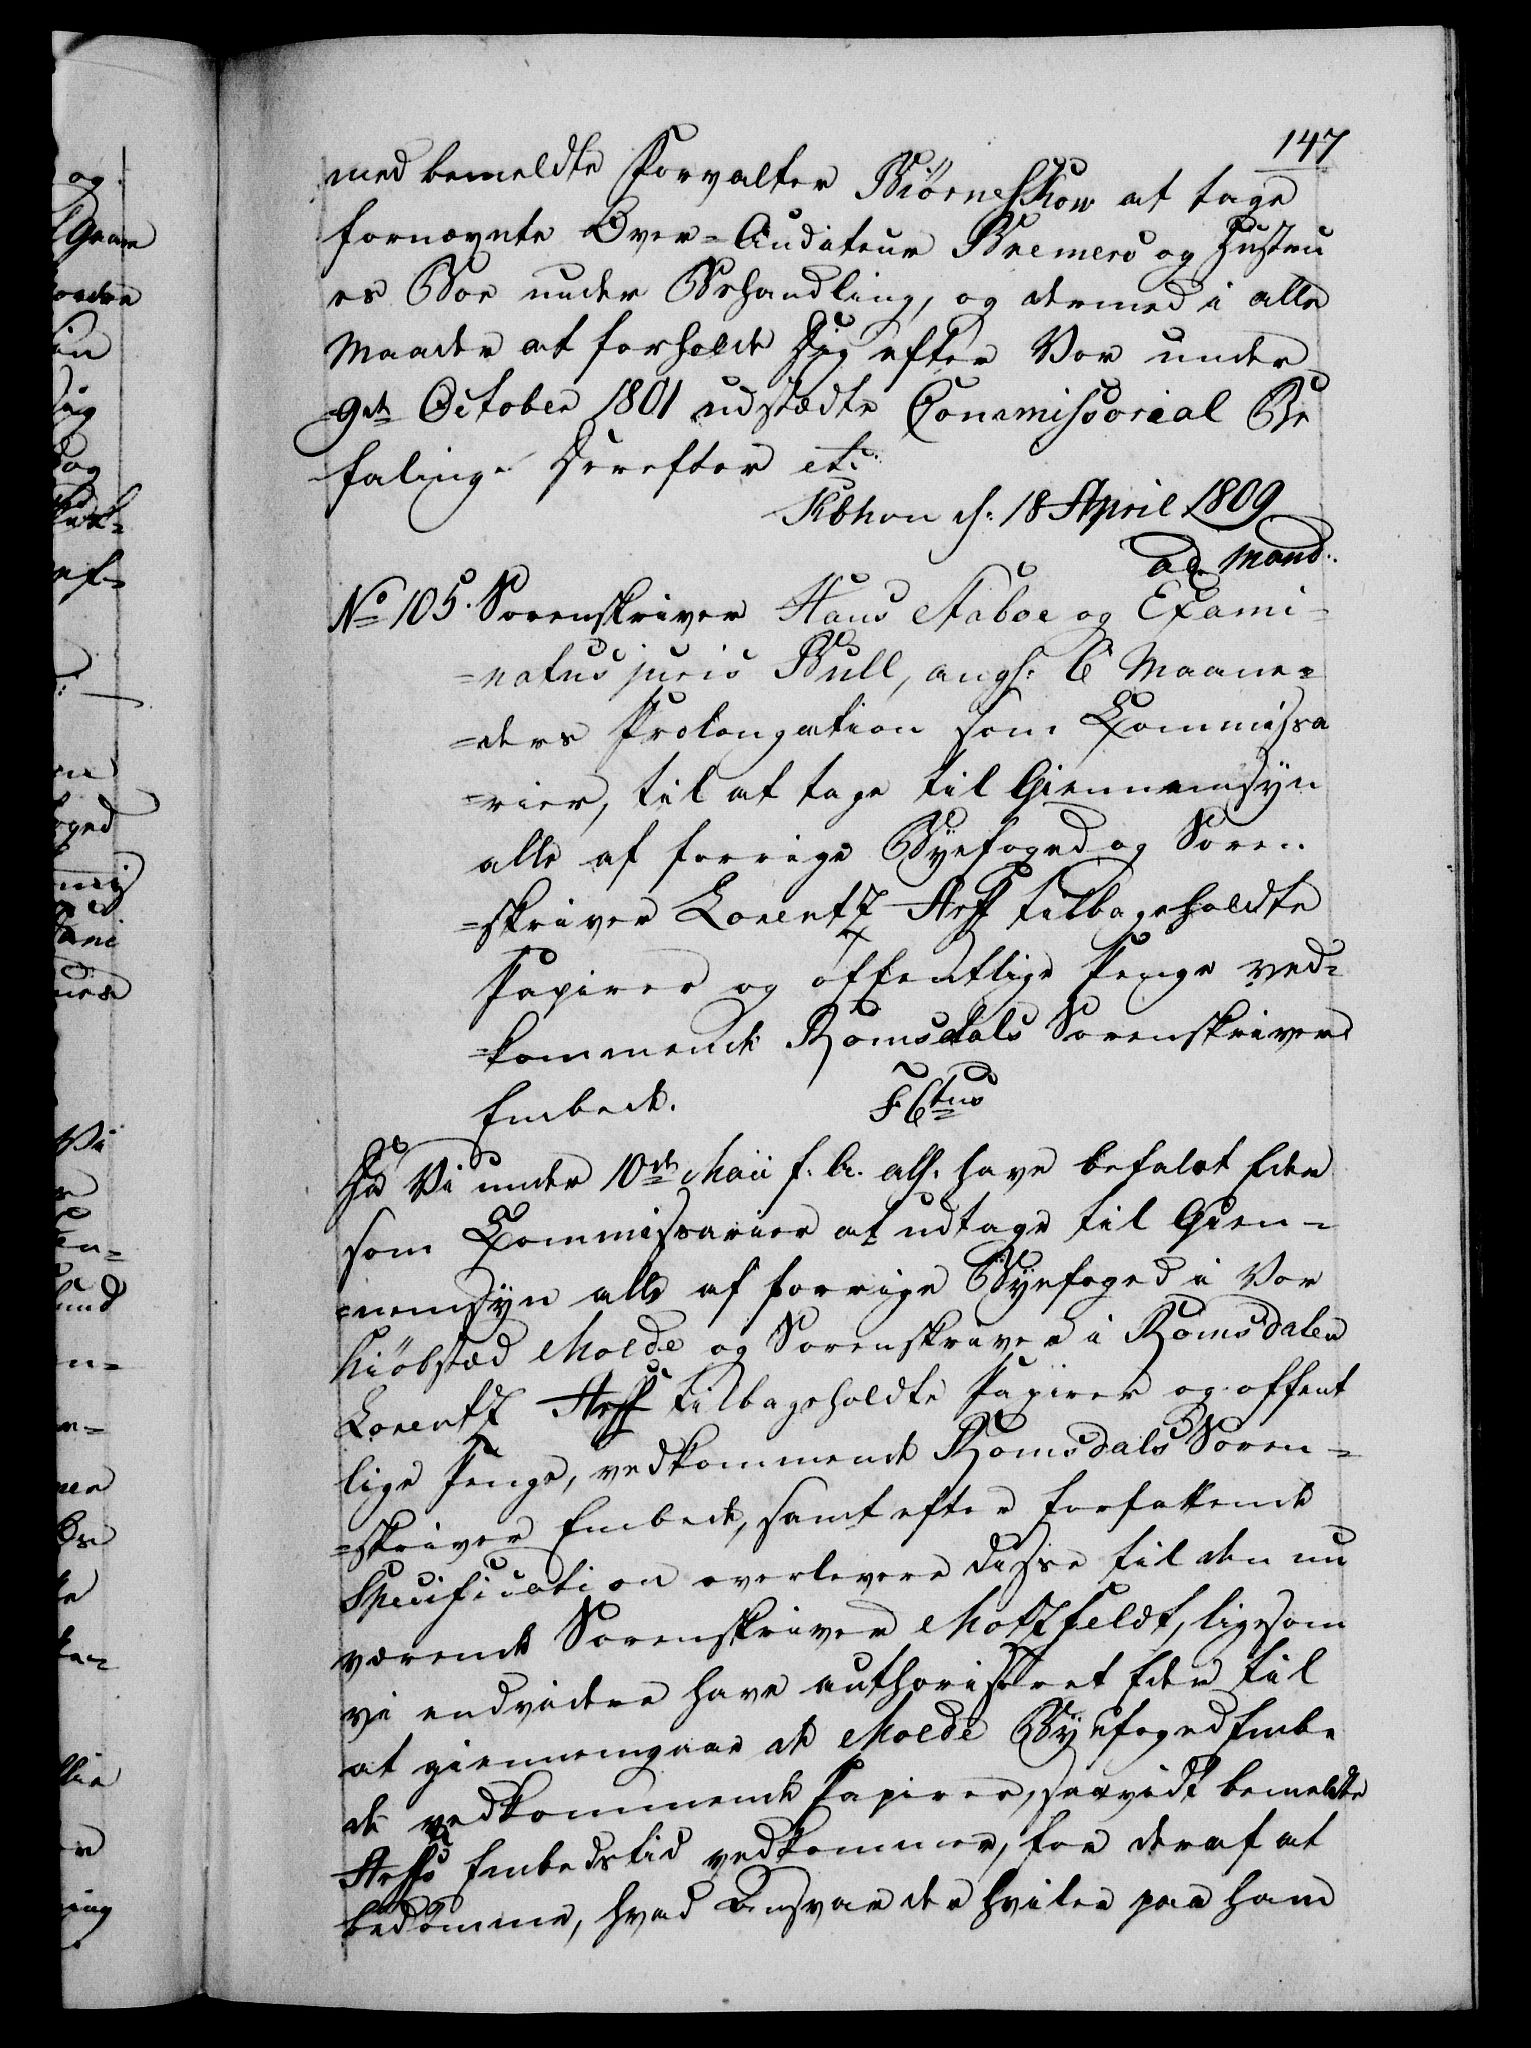 147
med bemeldte Forvalter Biørneskow at tage
fornævnte Over-Auditeur Bremers og Hustru
es Boe under Behandling, og dermed i alle
Maader at forholde Sig efter Vor under
9de October 1801 udstædte Commissorial Be
faling. Derefter etc:
Kbhvn d: 18 April 1809
ad Mand:
No 105. Sorenskriver Hans Staboe og Exami-
=natus juris Bull, angl. 6 Maane=
=ders Prolongation som Kommissa
=rier, til at tage til Giennemsyn
alle af forrige Byefoged og Soren
=skriver Lorentz Arff tilbageholdte
Papirer og offentlige Penge ved=
=kommende Romsdals Sorenskriver
Embede. F. 6tus
Da Vi under 10de Maii f. A. alh. have befalet Eder
som Kommissarier at udtage til Gien-
=nemsyn alle af forrige Byefoged i Vor
Kiøbstæd Molde og Sorenskriver i Romsdalen
Lorentz Arff tilbageholdte Papirer og offent
lige Penge, vedkommende Romsdals Soren-
=skriver Embede, samt efter forfattende
Specification overlevere disse til den nu
værende Sorenskriver Motzfeldt, ligesom
vi endvidere have authoriseret Eder til
at giennemgaae de Molde Byefoged Embe
de vedkommende Papirer, saavidt bemeldte
Arffs Embedstid vedkommer, for deraf at
bedømme, hvad Ansvar der hviler paa ham